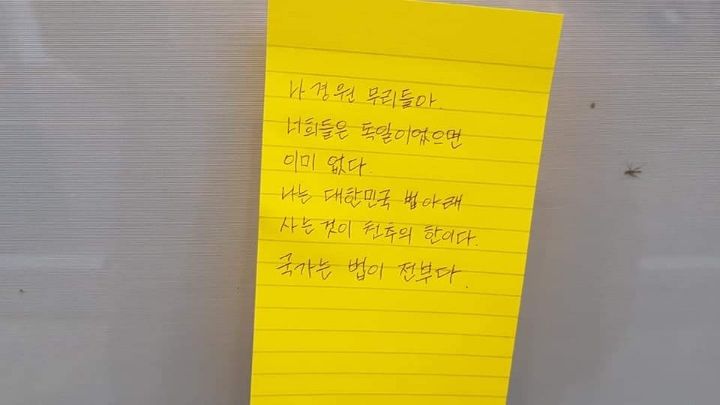 나경원 무리들아
너희들은 독일이었으면
이미 없다.
나는 대한민국 법아래
사는것이 천추의 한이다.
국가는 법이 전부다.